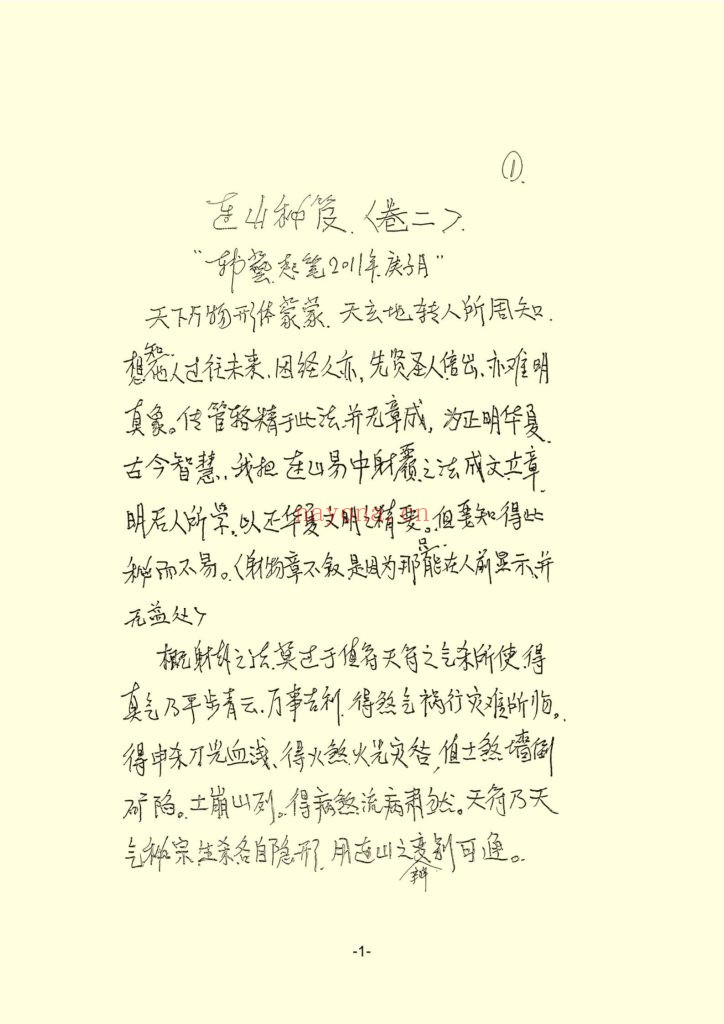 ①.
连山神笈.〈卷二〉.
“韩藝.起笔2011年庚子月”
天下万物形体蒙蒙.天玄地转人所周知.
想知他人过往未来.因经久亦,先贤圣人倍出.亦难明
真象。传管辂精于此法.并无章成,为正明华夏
古今智慧.我把连山易中射覆之法成文立章.
明后人所学.以正华夏文明之精要。但要知得此
秘而不易。〈射物章不叙.是因为那只能在人前显示.并
无益处〉
概射对之法.莫过于值符天符之气杀所使.得
真气乃平步青云.万事吉利.得煞气祸行灾难所临。
得申杀刀光血溅、得火煞火光灾咎,值土煞墙倒
矿陷。土崩山列。得病煞流病肃然。天符乃天
气神宗.生杀各自隐形.用连山之变辨别可通。
nayona.cn
-1-